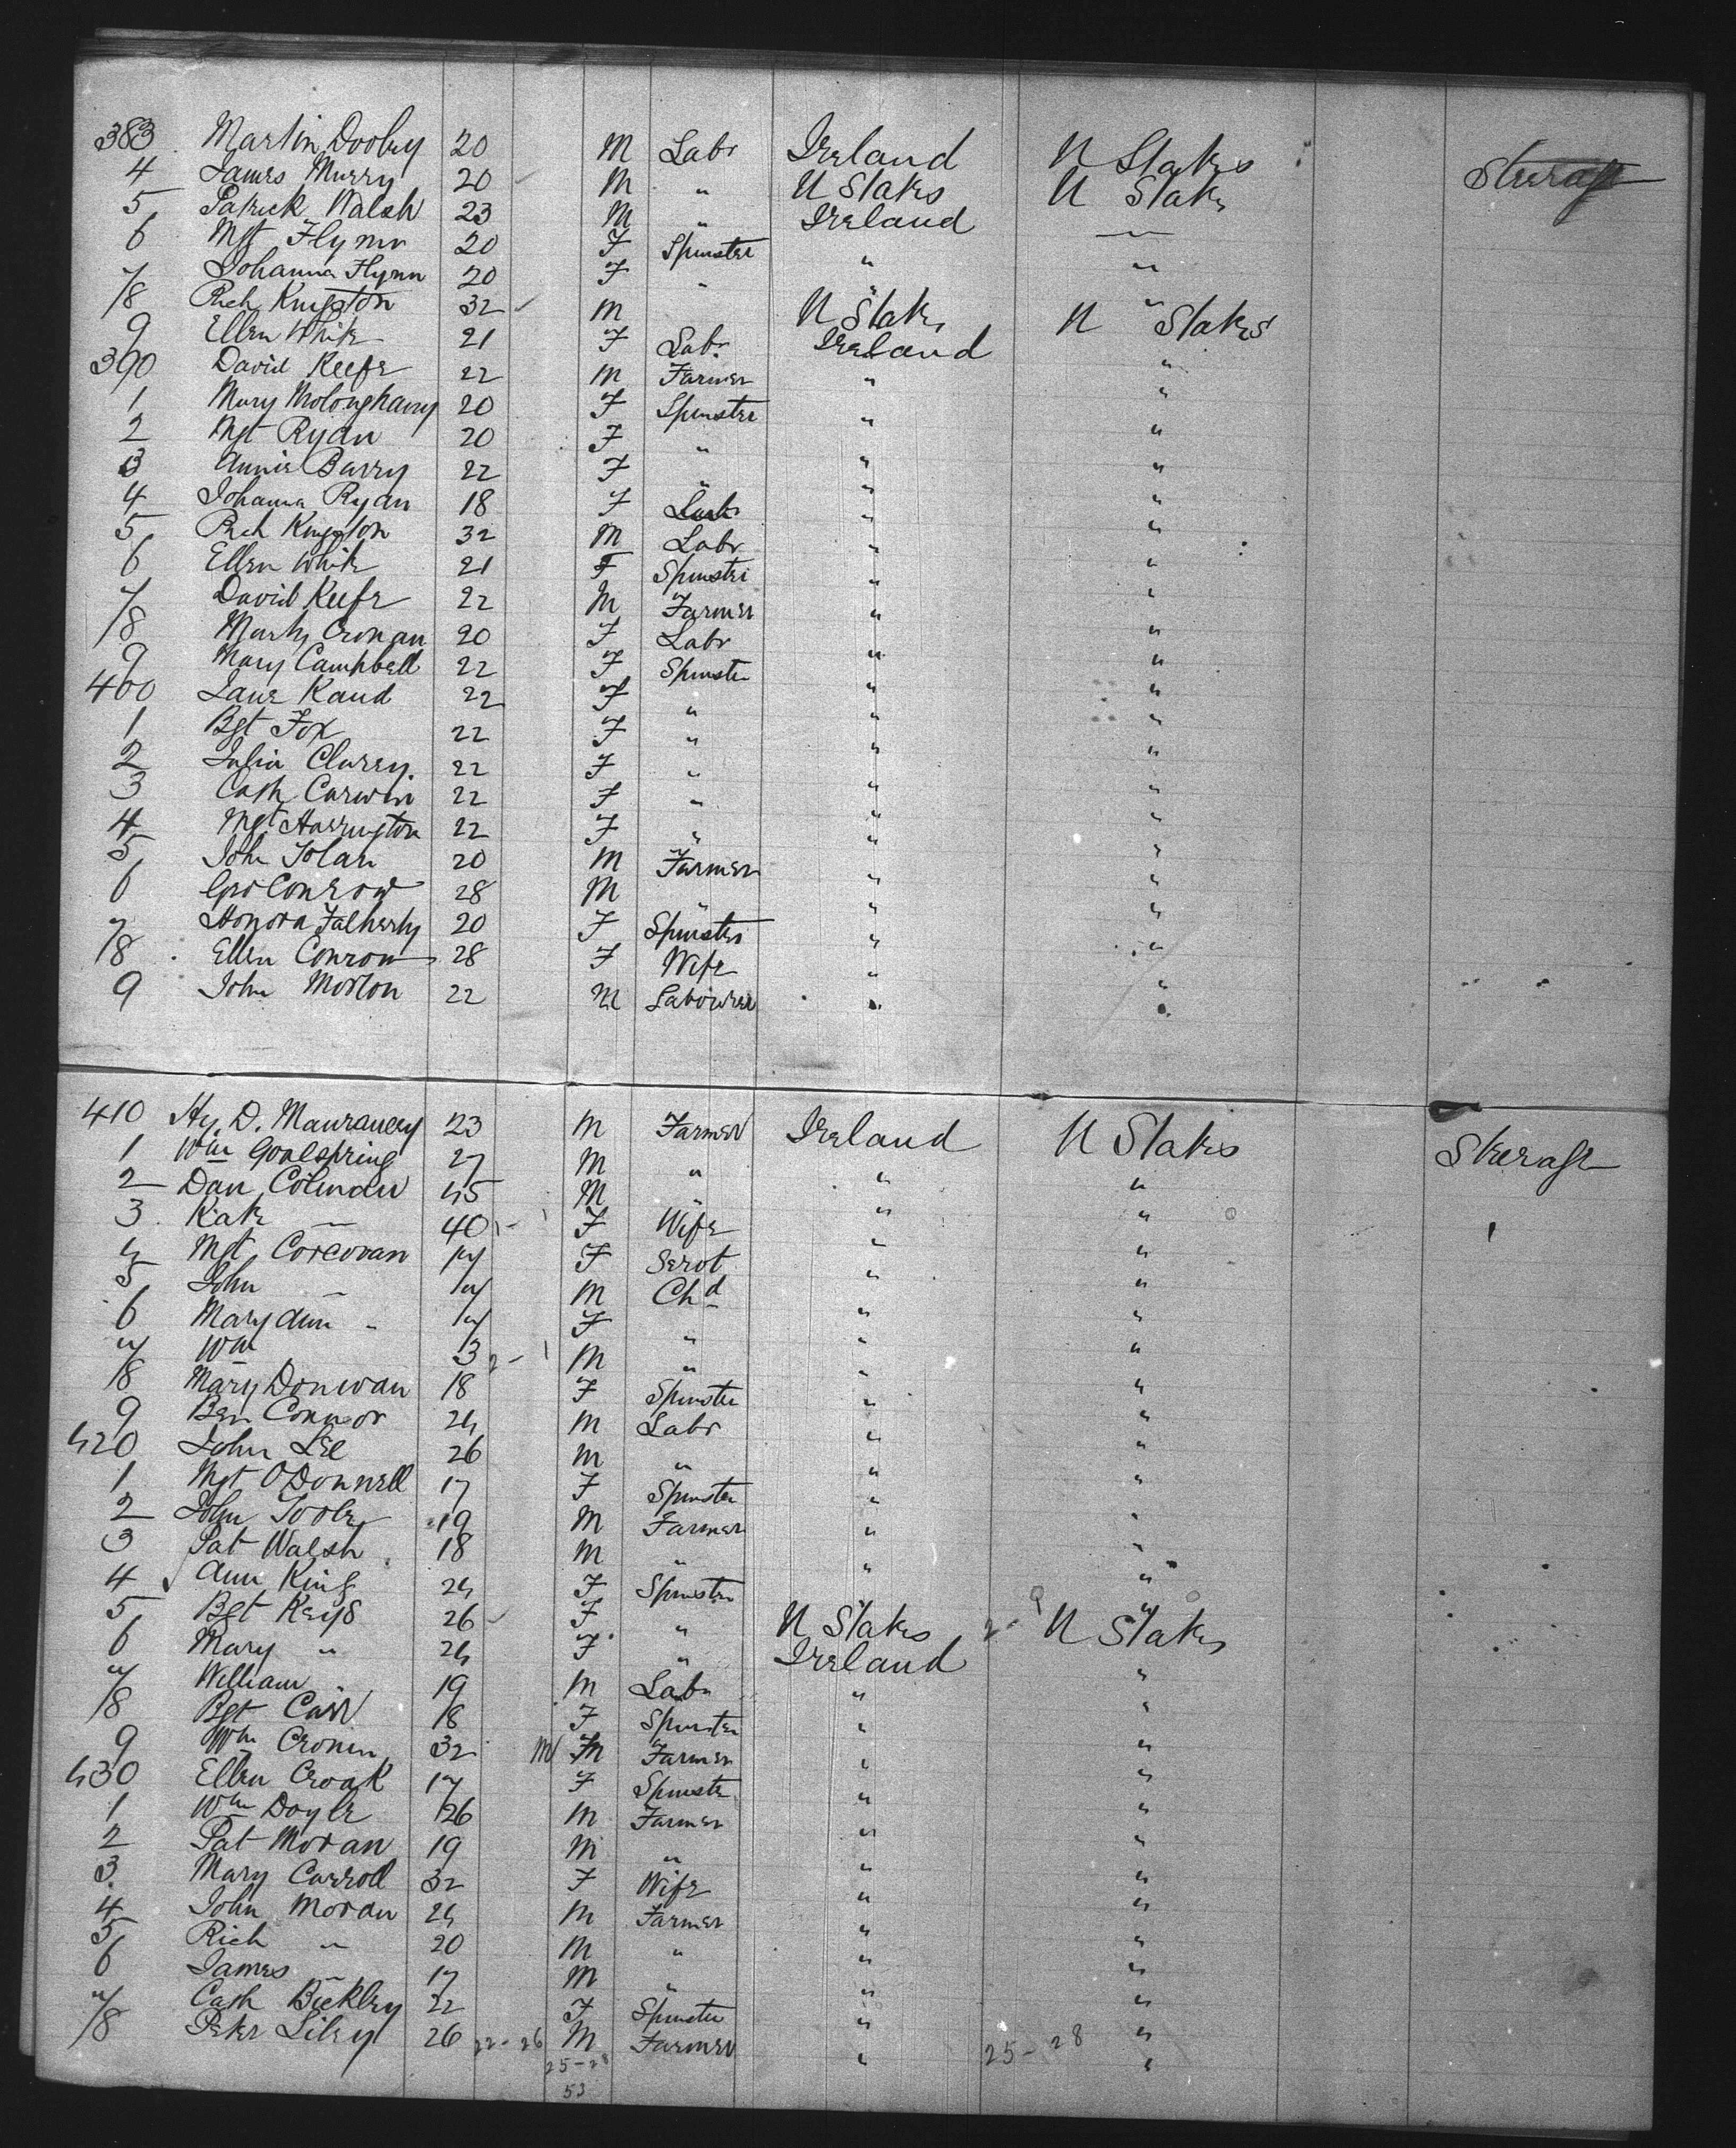 383 Martin Dooley 20 M Labr Ireland U States Steerage
4 James Murry 20 M " U States U States
5 Patrick Walsh 23 M " Ireland "
6 Mgt Flynn 20 F Spinster " "
7 Johanna Flynn 20 F " " "
8 Rich Kingston 32 M U States U States
9 Ellen White 21 F Labr Ireland "
390 David Keefe 22 M Farmer " "
1 Mary Moloughany 20 F Spinster " "
2 Mgt Ryan 20 F " " "
3 Annie Barry 22 F " " "
4 Johanna Ryan 18 F " "
5 Rich Kingston 32 M Labr " "
6 Ellen White 21 F Spinster " "
7 David Keefe 22 M Farmer " "
8 Cronan 20 F Labr " "
9 Mary Campbell 22 F Spinster " "
400 Jane Kand 22 F " " "
1 Bgt Fox 22 F " " "
2 Julia Clurey 22 F " " "
3 Cath Carwin 22 F " " "
4 Mgt Harrington 22 F " " "
5 John Tolan 20 M Farmer " "
6 Geo Conrow 28 M " " "
7 Honora Falherty 20 F Spinster " "
8 Ellen Conrow 28 F Wife " "
9 John Morlon 22 M Labourer " "
410 Hy. D. Mauraucey 23 M Farmer Ireland U States Steerage
1 Wm Goalspring 27 M " " "
2 Dan Colman 45 M " " "
3 Kate " 40 F Wife " "
4 Mgt Corcoran 17 F Servt " "
5 John " 14 M Chd " "
6 Mary Ann " 14 F " " "
7 Wm " 3 M " " "
8 Mary Donovan 18 F Spinster " "
9 Ben Connor 24 M Labr " "
420 John Lee 26 M " " "
1 Mgt O'Donnell 17 F Spinster " "
2 John Toole 19 M Farmer " "
3 Pat Walsh 18 M " " "
4 Ann King 24 F Spinster " "
5 Bgt Keys 26 F " U States U States
6 Mary " 24 F " Ireland "
7 William " 19 M Labr " "
8 Bgt Carr 18 F Spinster " "
9 Wm Cronin 32 M M Farmer " "
430 Ellen Croak 17 F Spinster " "
1 Wm Doyle 26 M Farmer " "
2 Pat Moran 19 M " " "
3 Mary Carroll 32 F Wife " "
4 John Moran 24 M Farmer " "
5 Rich " 20 M " " "
6 James " 17 M " " "
7 Cath Buckley 22 F Spinster " "
8 Peter Liley 26 22-26 M Farmer " 25-28 "
25-28
53